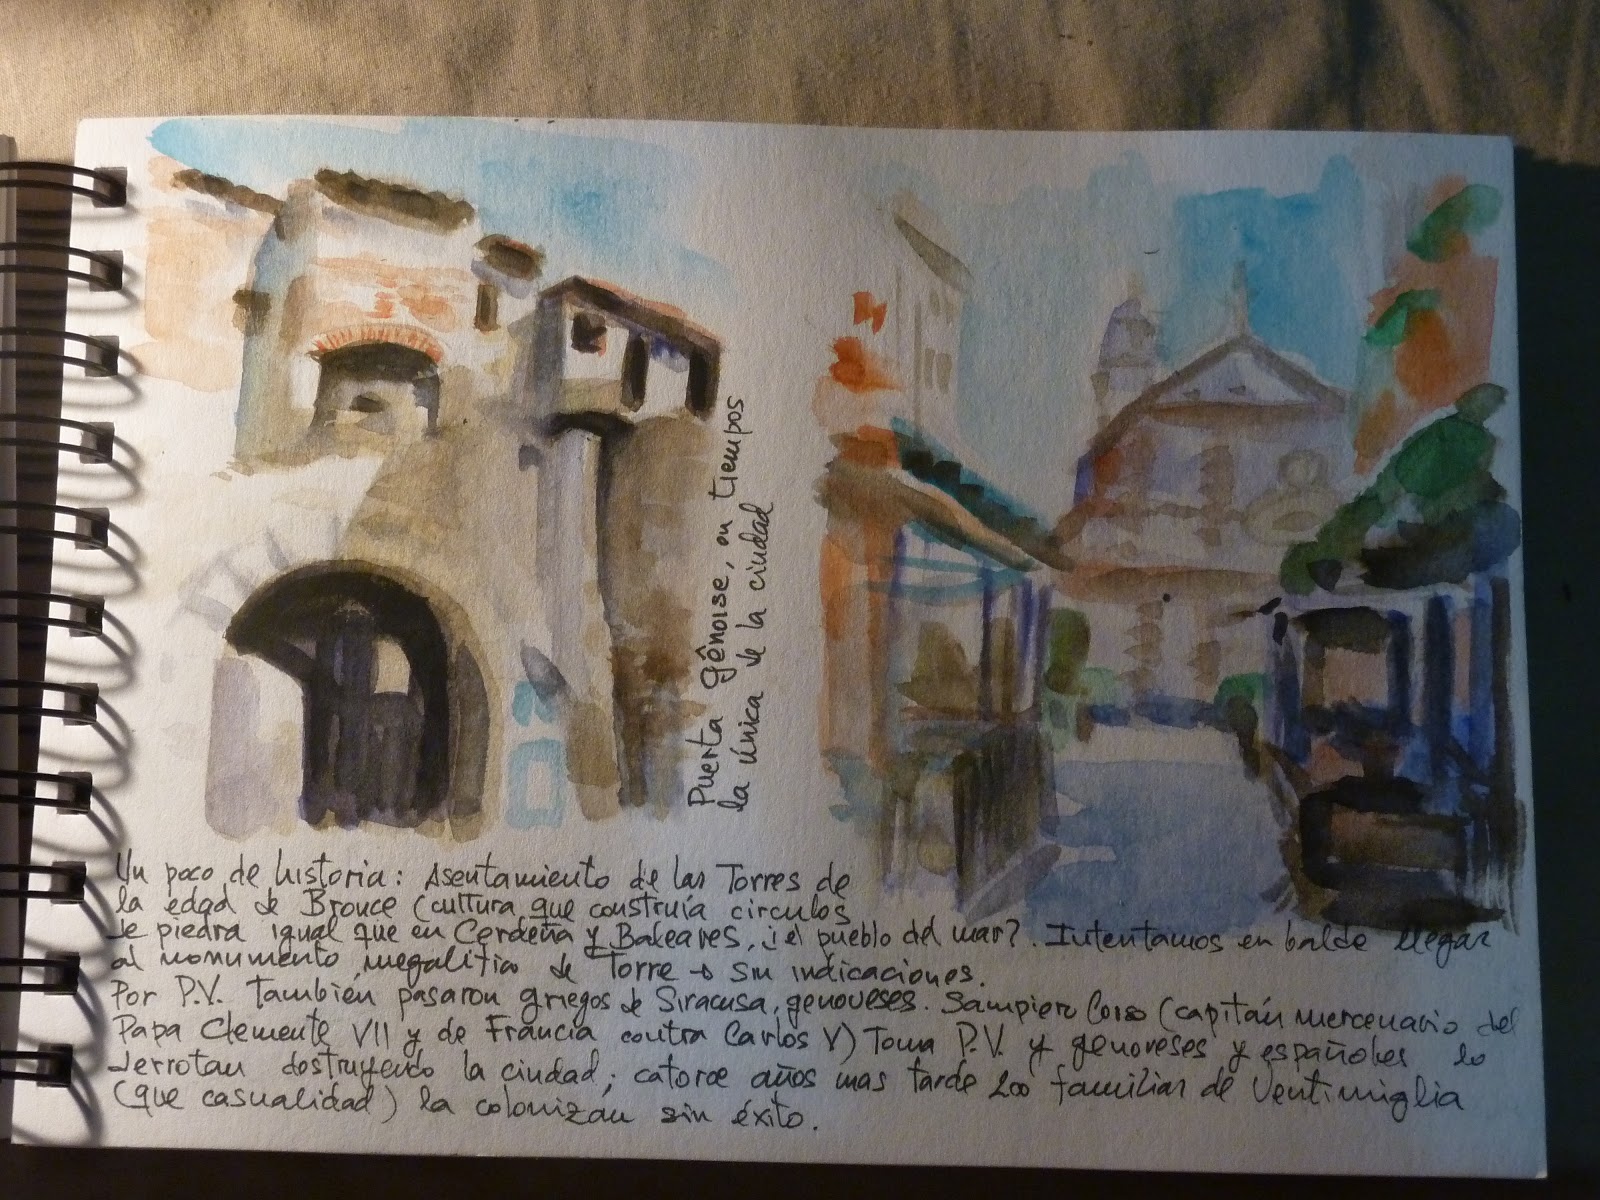 Puerta gênoise, en tiempos
la única de la ciudad
Un poco de historia: Asentamiento de las Torres de
la edad de Bronce (cultura que construía círculos
de piedra igual que en Cerdeña y Baleares, ¿i el pueblo del mar?. Intentamos en balde llegar
al monumento megalítico de Torre → sin indicaciones.
Por P.V. también pasaron griegos de Siracusa, genoveses. Sampiero Corso (capitán mercenario del
Papa Clemente VII y de Francia contra Carlos V) Toma P.V. y genoveses y españoles lo
derrotan destruyendo la ciudad; catorce años mas tarde 200 familias de Ventimiglia
(que casualidad) la colonizan sin éxito.